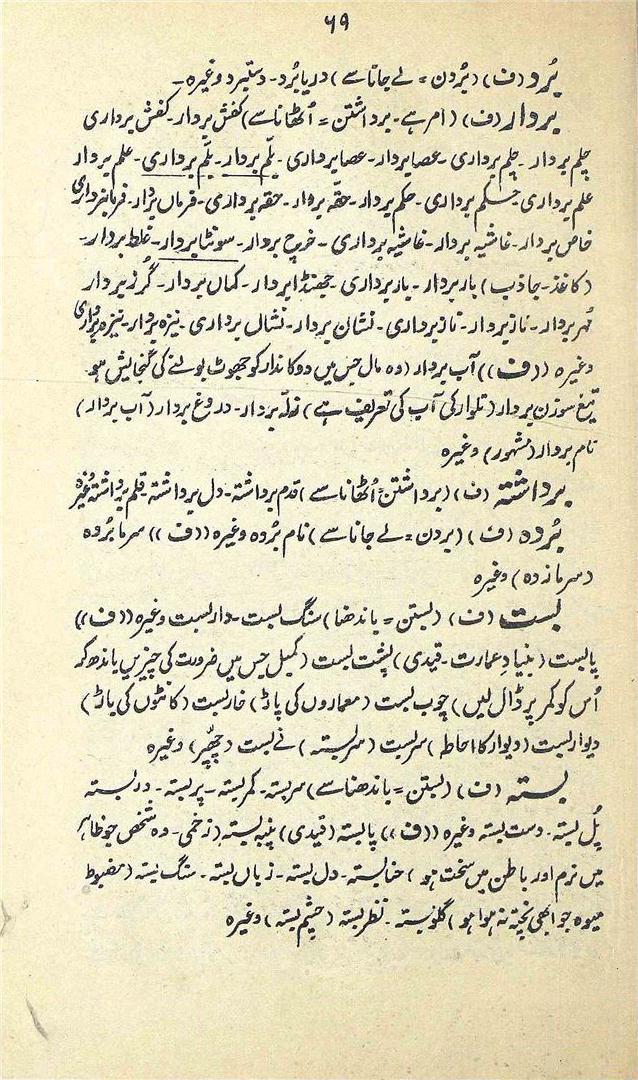 ۶۹
بُرد (ف) (بُردن = لے جانا سے) دریابُرد۔ دستبرد وغیرہ۔
بردار (ف) (امر ہے۔ برداشتن = اُٹھانا سے) کفش بردار۔ کفش برداری
چلم بردار۔ چلم برداری۔ عصابردار۔ عصابرداری۔ بلّم بردار۔ بلّم برداری۔ علم بردار
علم برداری حکم برداری۔ حکم بردار۔ حقّہ بردار۔ حقہ برداری۔ فرماں بردار۔ فرمانبرداری
خاص بردار۔ غاشیہ بردار۔ غاشیہ برداری۔ خرچ بردار۔ سونٹا بردار۔ غلط بردار۔
(کاغذ۔ جاذب) باربردار۔ باربرداری۔ جھنڈا بردار۔ کماں بردار۔ گُرز بردار
مُہر بردار۔ ناز بردار۔ ناز برداری۔ نشان بردار۔ نشاں برداری۔ نیزہ بردار۔ نیزہ برداری
وغیرہ ((ف)) آب بردار (وہ مال جس میں دوکاندار کو جھوٹ بولنے کی گنجایش ہو۔
تیغ سوزن بردار (تلوار کی آب کی تعریف ہے) زلّہ بردار۔ دروغ بردار (آب بردار)
نام بردار (مشہور) وغیرہ
برداشتہ (ف) (برداشتن = اُٹھانا سے) قدم برداشتہ۔ دل برداشتہ۔ قلم برداشتہ وغیرہ
بُردہ (ف) (بردن = لے جانا سے) نام بُردہ وغیرہ ((ف)) سرما بُردہ
(سرمازدہ) وغیرہ
بست (ف) (بستن = باندھنا) سنگ بست۔ داربست وغیرہ ((ف))
پابست (بنیادِ عمارت۔ قیدی) پشت بست (کمبل جس میں ضرورت کی چیزیں باندھ کر
اُس کو کمر پر ڈال لیں) چوب بست (معماروں کی پاڑ) خاربست (کانٹوں کی باڑ)
دیوار بست (دیوار کا احاطہ) سربست (سربستہ) نے بست (چھپّر) وغیرہ
بستہ (ف) (بستن = باندھنا سے) سربستہ۔ کمر بستہ۔ پر بستہ۔ دربستہ
پُل بستہ۔ دست بستہ وغیرہ ((ف)) پابستہ (قیدی) پنبہ بستہ (زخمی۔ وہ شخص جو ظاہر
میں نرم اور باطن میں سخت ہو) حنا بستہ۔ دل بستہ۔ زباں بستہ۔ سنگ بستہ (مضبوط
میوہ جو ابھی پختہ نہ ہوا ہو) گلو بستہ۔ نظر بستہ (چشم بستہ) وغیرہ